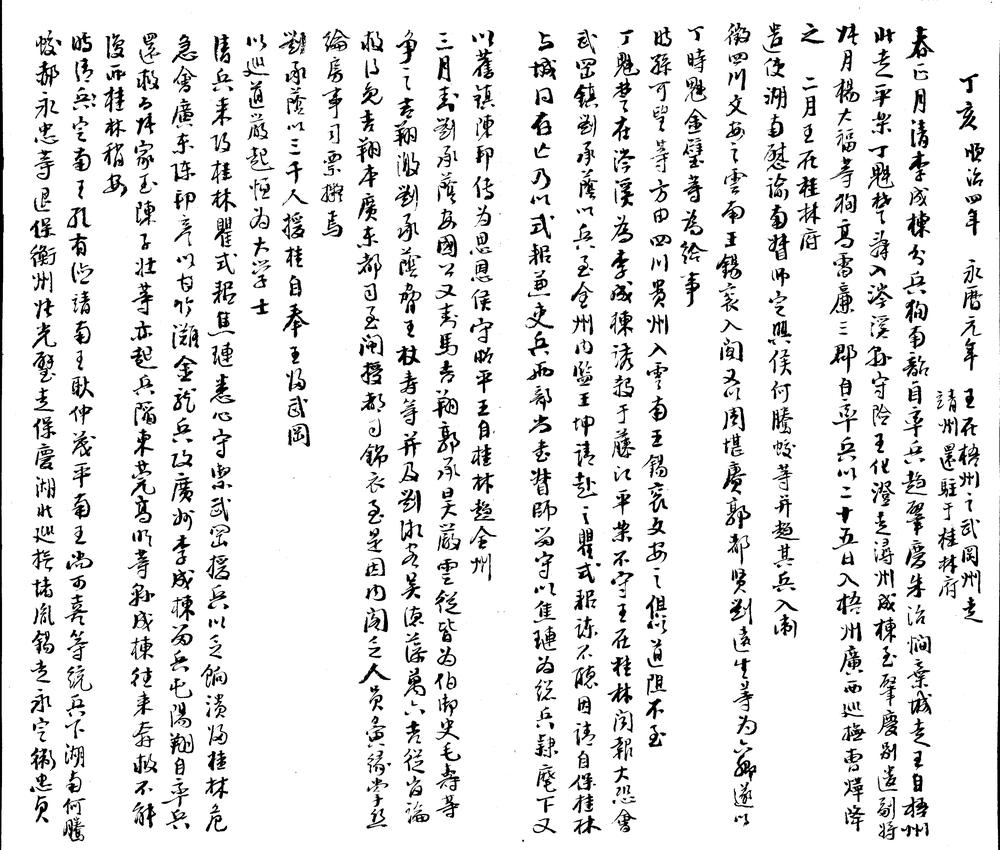 丁亥 順治四年 永曆元年 王在梧州之武岡州走
靖州還駐于桂林府
春正月清李成棟分兵狥南韶自率兵趋肇慶朱治㵎棄城走王自梧州
北走平樂丁魁楚舜入涔溪知守陰王化澄走潯州成棟至肇慶别遣副將
楊大福等狥高雷廉三郡自率兵以二十五日入梧州廣西巡撫曹燁降
之 二月王在桂林府
遣使湖南慰諭南督師定興侯何騰蛟等并趋其兵入衛
徵四川文安之雲南王錫袞入閣又以周堪賡郭都賢劉遠生等為六卿遂以
丁時魁金堡等為給事
時孫可望等方由四川貴州入雲南王錫袞文安之俱以道阻不至
丁魁楚在涔溪為李成棟誘殺于藤江平樂不守王在桂林聞報大恐會
武岡鎮劉承蔭以兵至全州内監王坤請赴之瞿式耜諫不聽因請自保桂林
与城同存亡乃以式耜兼吏兵兩部尚書督師留守以焦璉為總兵隸麾下又
以舊鎮陳邦傳為思恩侯守昭平王自桂林趋全州
三月封劉承蔭安國公又封馬吉翔郭承昊嚴雲從皆為伯御史毛壽等
争之吉翔激劉承蔭脅王杖壽等并及劉湘客吴德藻萬六吉從官論
救得免吉翔本廣東都司至閩授都司錦衣至是因内閣乏人員夤緣掌絲
綸房事司票擬焉
劉承蔭以三千人援桂自奉王歸武岡
以巡道嚴起恒為大學士
清兵来攻桂林瞿式耜焦璉悉心守禦武岡援兵以乏餉潰歸桂林危
急會廣東陳邦彦以甘竹灘余龍兵攻廣州李成棟留兵屯陽朔自率兵
還救而張家玉陳子壯等亦起兵陷東莞高明等縣成棟往来奔救不能
復西桂林稍安
時清兵定南王孔有德靖南王耿仲茂平南王尚可喜等統兵下湖南何騰
蛟郝永忠等退保衡州張光璧走保慶湖北巡撫堵胤錫走永定衛忠貞